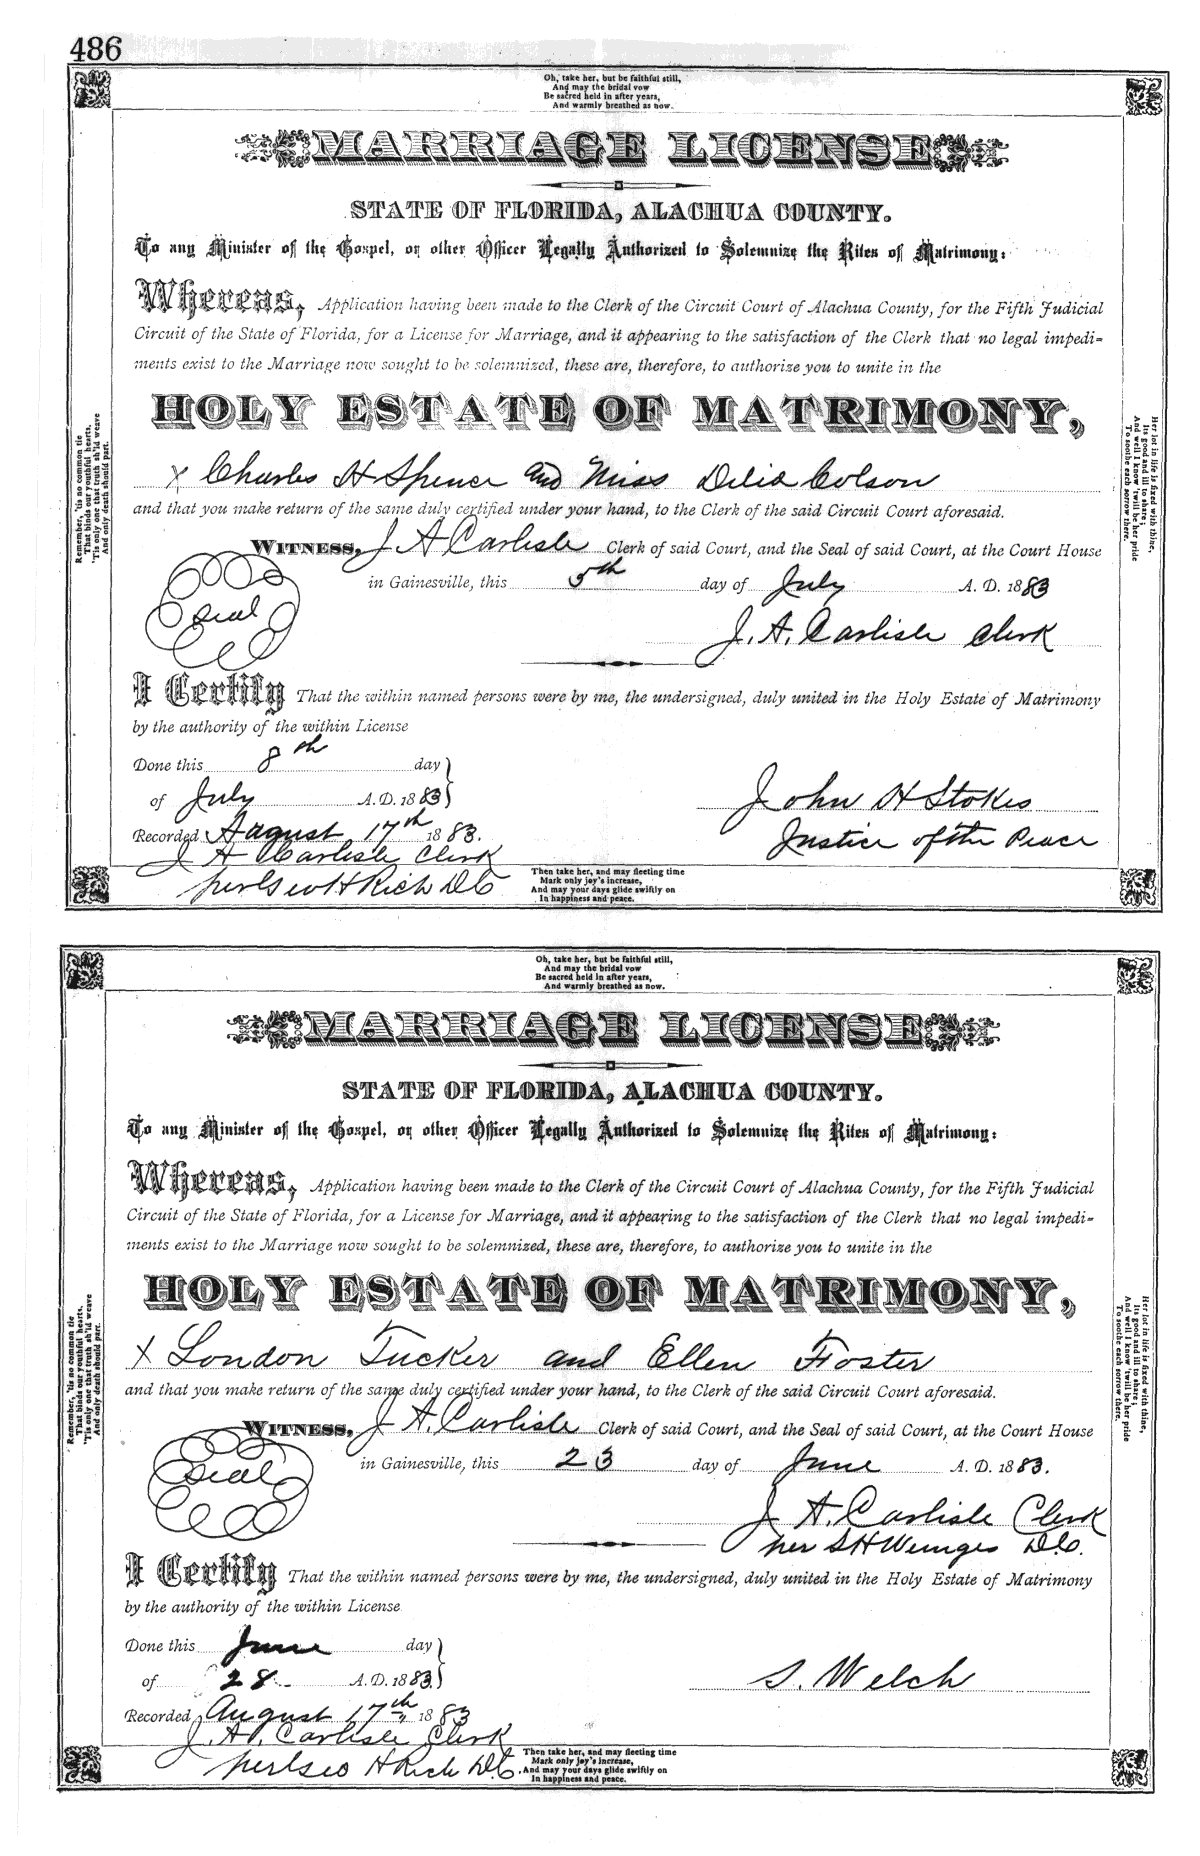 486
Oh, take her, but be faithful still,
And may the bridal vow
Be sacred held in after years,
And warmly breathed as now.
MARRIAGE LICENSE
STATE OF FLORIDA, ALACHUA COUNTY.
To any Minister of the Gospel, or other Officer Legally Authorized to Solemnize the Rites of Matrimony:
Whereas, Application having been made to the Clerk of the Circuit Court of Alachua County, for the Fifth Judicial
Circuit of the State of Florida, for a License for Marriage, and it appearing to the satisfaction of the Clerk that no legal impedi-
ments exist to the Marriage now sought to be solemnized, these are, therefore, to authorize you to unite in the
HOLY ESTATE OF MATRIMONY,
x Charles H Spence and Miss Delia Colson
and that you make return of the same duly certified under your hand, to the Clerk of the said Circuit Court aforesaid.
WITNESS, J A Carlisle Clerk of said Court, and the Seal of said Court, at the Court House
in Gainesville, this 5th day of July A. D. 1883
Seal
J. A. Carlisle Clerk
I Certify That the within named persons were by me, the undersigned, duly united in the Holy Estate of Matrimony
by the authority of the within License
Done this 8th day
of July A. D. 1883
John H Stokes
Recorded August 17th 1883.
Justice of the Peace
J A Carlisle Clerk
per Geo H Rich D.C
Remember, 'tis no common tie
That binds our youthful hearts,
'Tis only one that truth sh'ld weave
And only death should part.
Her lot in life is fixed with thine,
Its good and ill to share;
And well I know 'twill be her pride
To soothe each sorrow there.
Then take her, and may fleeting time
Mark only joy's increase,
And may your days glide swiftly on
In happiness and peace.
Oh, take her, but be faithful still,
And may the bridal vow
Be sacred held in after years,
And warmly breathed as now.
MARRIAGE LICENSE
STATE OF FLORIDA, ALACHUA COUNTY.
To any Minister of the Gospel, or other Officer Legally Authorized to Solemnize the Rites of Matrimony:
Whereas, Application having been made to the Clerk of the Circuit Court of Alachua County, for the Fifth Judicial
Circuit of the State of Florida, for a License for Marriage, and it appearing to the satisfaction of the Clerk that no legal impedi-
ments exist to the Marriage now sought to be solemnized, these are, therefore, to authorize you to unite in the
HOLY ESTATE OF MATRIMONY,
x London Tucker and Ellen Foster
and that you make return of the same duly certified under your hand, to the Clerk of the said Circuit Court aforesaid.
WITNESS, J A. Carlisle Clerk of said Court, and the Seal of said Court, at the Court House
in Gainesville, this 23 day of June A. D. 1883.
Seal
J A. Carlisle Clerk
per S H D.C.
I Certify That the within named persons were by me, the undersigned, duly united in the Holy Estate of Matrimony
by the authority of the within License
Done this June day
of 28 A. D. 1883.
S. Welch
Recorded August 17th 1883
J. A. Carlisle Clerk
per Geo H Rich D.C.
Remember, 'tis no common tie
That binds our youthful hearts,
'Tis only one that truth sh'ld weave
And only death should part.
Her lot in life is fixed with thine,
Its good and ill to share;
And well I know 'twill be her pride
To soothe each sorrow there.
Then take her, and may fleeting time
Mark only joy's increase,
And may your days glide swiftly on
In happiness and peace.